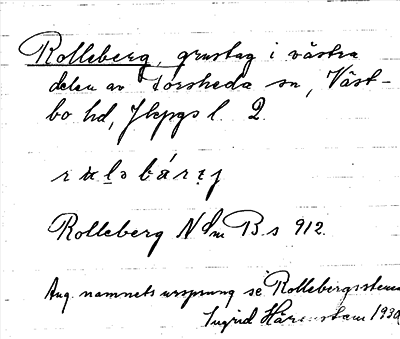 Rolleberg, grustag i västra
delen av Forsheda sn, Väst-
bo hd, Jkpgs l. 2.
Rolleberg NSm B. s 912.
Ang. namnets ursprung se Rollebergsstenen
Ingrid 193